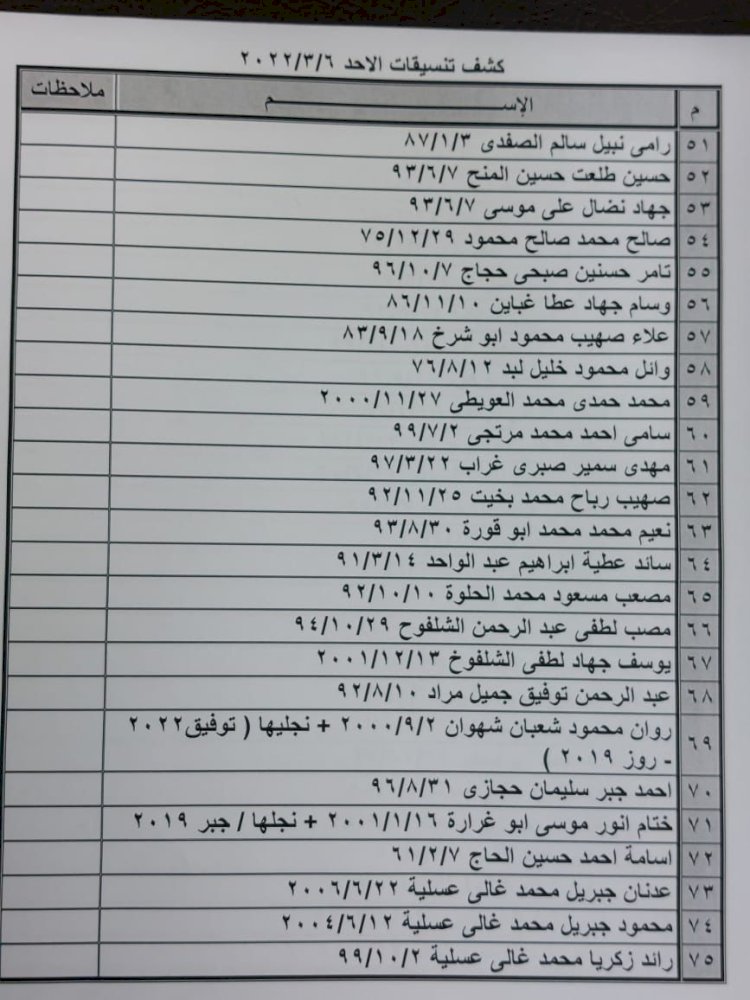 كشف تنسيقات الاحد ٢٠٢٢/٣/٦
م الإســــــــم ملاحظات
٥١ رامى نبيل سالم الصفدى ٨٧/١/٣
٥٢ حسين طلعت حسين المنح ٩٣/٦/٧
٥٣ جهاد نضال على موسى ٩٣/٦/٧
٥٤ صالح محمد صالح محمود ٧٥/١٢/٢٩
٥٥ تامر حسنين صبحى حجاج ٩٦/١٠/٧
٥٦ وسام جهاد عطا غباين ٨٦/١١/١٠
٥٧ علاء صهيب محمود ابو شرخ ٨٣/٩/١٨
٥٨ وائل محمود خليل لبد ٧٦/٨/١٢
٥٩ محمد حمدى محمد العويطى ٢٠٠٠/١١/٢٧
٦٠ سامى احمد محمد مرتجى ٩٩/٧/٢
٦١ مهدى سمير صبرى غراب ٩٧/٣/٢٢
٦٢ صهيب رباح محمد بخيت ٩٢/١١/٢٥
٦٣ نعيم محمد محمد ابو قورة ٩٣/٨/٣٠
٦٤ سائد عطية ابراهيم عبد الواحد ٩١/٣/١٤
٦٥ مصعب مسعود محمد الحلوة ٩٢/١٠/١٠
٦٦ مصب لطفى عبد الرحمن الشلفوح ٩٤/١٠/٢٩
٦٧ يوسف جهاد لطفى الشلفوخ ٢٠٠١/١٢/١٣
٦٨ عبد الرحمن توفيق جميل مراد ٩٢/٨/١٠
٦٩ روان محمود شعبان شهوان ٢٠٠٠/٩/٢ + نجليها ( توفيق٢٠٢٢
- روز ٢٠١٩ )
٧٠ احمد جبر سليمان حجازى ٩٦/٨/٣١
٧١ ختام انور موسى ابو غرارة ٢٠٠١/١/١٦ + نجلها / جبر ٢٠١٩
٧٢ اسامة احمد حسين الحاج ٦١/٢/٧
٧٣ عدنان جبريل محمد غالى عسلية ٢٠٠٦/٦/٢٢
٧٤ محمود جبريل محمد غالى عسلية ٢٠٠٤/٦/١٢
٧٥ رائد زكريا محمد غالى عسلية ٩٩/١٠/٢